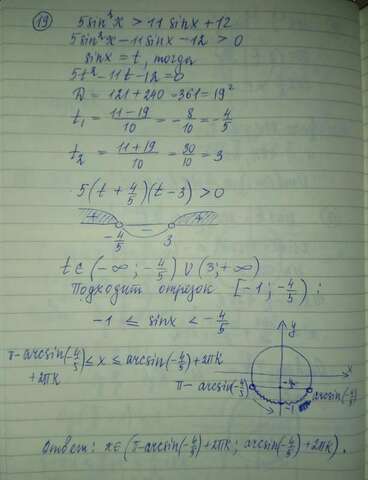 19) 5sin²x > 11 sinx + 12
5sin²x - 11sinx - 12 > 0
sinx = t, тогда
5t² - 11t - 12 = 0
D = 121 + 240 = 361 = 19²
t₁ = (11-19)/10 = -8/10 = -4/5
t₂ = (11+19)/10 = 30/10 = 3
5(t + 4/5)(t - 3) > 0
+ - +
-4/5 3
t ∈ (-∞; -4/5) ∪ (3; +∞)
Подходит отрезок [-1; -4/5):
-1 ≤ sinx < -4/5
y
x
π - arcsin(-4/5) ≤ x ≤ arcsin(-4/5) + 2πk
+ 2πk
π - arcsin(-4/5)
arcsin(-4/5)
-4/5
-1
Ответ: x ∈ (π - arcsin(-4/5) + 2πk; arcsin(-4/5) + 2πk).